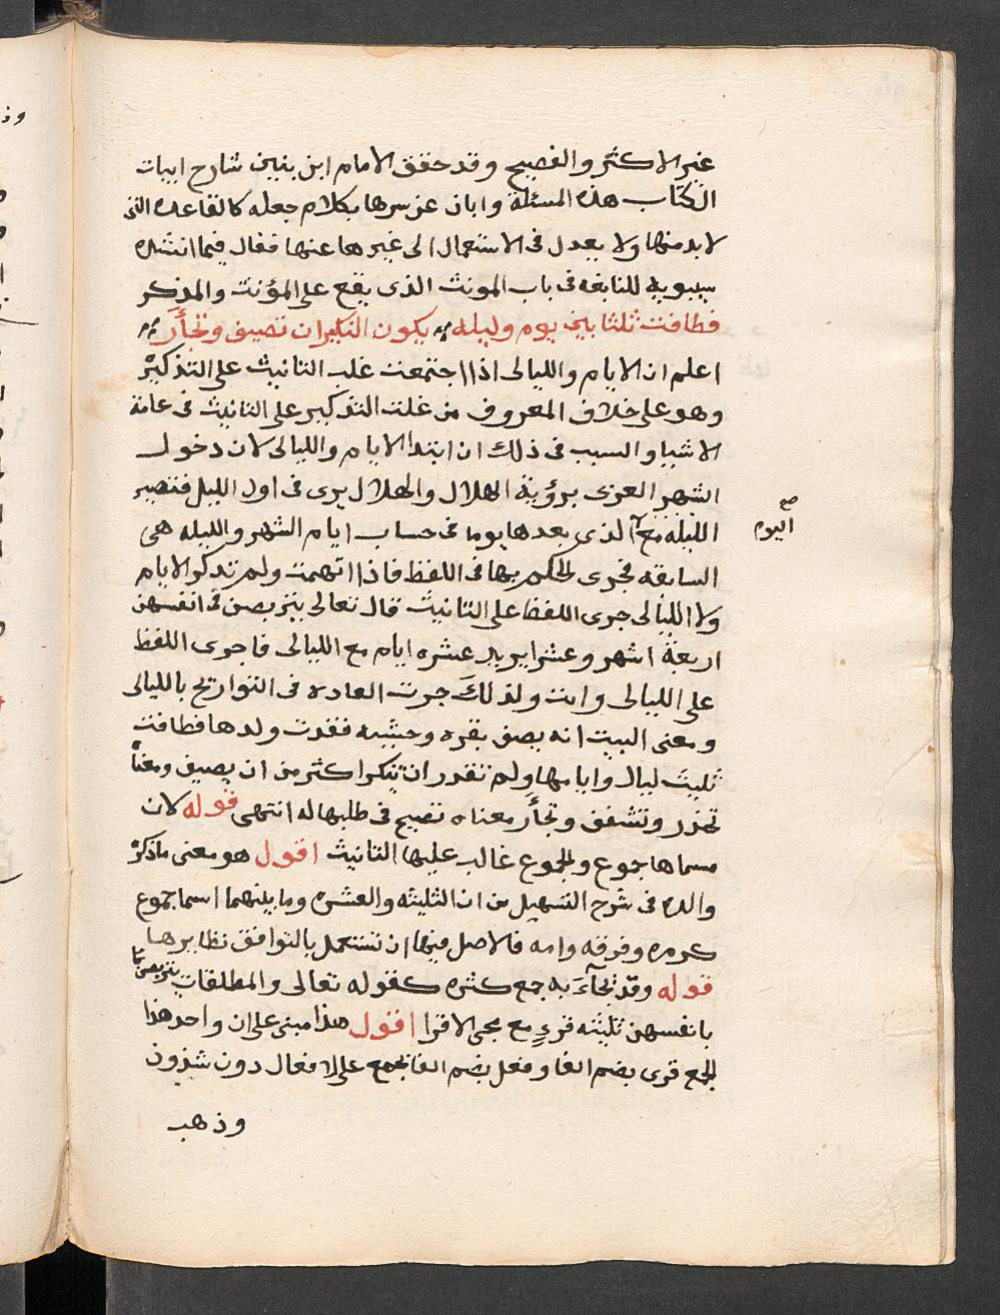 غير الاكثر والفصيح وقد حقق الامام ابن بنين شارح ابيات
الكتاب هذه المسئلة وابان عن سرها بكلام جعله كالقاعده التى
لابد منها ولا يعدل فى الاستعمال الى غيرها عنها فقال فيما انشده
سيبويه للنابغه فى باب المونث الذى يقع على المؤنث والمذكر
فطافت ثلثا بين يوم وليله يكون النكيران تضيف وتجأر
اعلم ان الايام والليالى اذا اجتمعت غلب التانيث على التذكير
وهو على خلاف المعروف من غلبت التذكير على التانيث فى عامة
الاشيا والسبب فى ذلك ان ابتدا الايام والليالى لان دخول
الشهر العربى برؤية الهلال والهلال يرى فى اول الليل فتصير
الليله مع الذى بعدها يوما فى حساب ايام الشهر والليله هى
صح
اليوم
السابقه فجرى الحكم بها فى اللفظ فاذا اتهمت ولم تذكر الايام
ولا الليالى جرى اللفظ على التانيث قال تعالى يتربصن فى انفسهن
اربعة اشهر وعشرا يريد عشره ايام مع الليالى فاجرى اللفظ
على الليالى وانث ولذلك جرت العاده فى التواريخ بالليالى
ومعنى البيت انه يصف بقره وحشيه فقدت ولدها فطافت
ثليث ليال وايامها ولم تقدر ان تنكرا كثر من ان يضيف ومعناه
تحذر وتشفق وتجأر معناه تصيح فى طلبها له انتهى قوله لان
مسماها جموع والجموع غالب عليها التانيث اقول هو معنى ما ذكره
والده فى شرح التسهيل من ان الثليثه والعشره وما بينهما اسما جموع
كزمره وفرقه وامه فالاصل فيها ان تستعمل بالتوافق نظايرها
قوله وقد نجآء به جمع كثره كقوله تعالى والمطلقات يتربصن
بانفسهن ثليثه قروء مع مجى الاقرا اقول هذا مبنى على ان واحد هذا
الجمع قرى بضم الفا وفعل بضم الفا يجمع على افعال دون شذوذ
وذهب